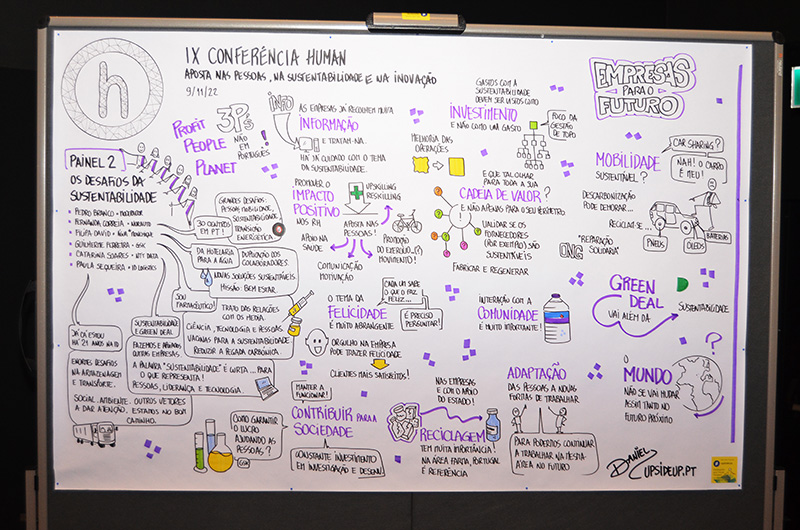 h
IX CONFERÊNCIA HUMAN
APOSTA NAS PESSOAS, NA SUSTENTABILIDADE E NA INOVAÇÃO
9/11/22
EMPRESAS
PARA O
FUTURO
PROFIT
PEOPLE
PLANET
3P's
NÃO
EM
PORTUGUÊS!
INFO
AS EMPRESAS JÁ RECOLHEM MUITA
INFORMAÇÃO
E TRATAM-NA.
HÁ JÁ CUIDADO COM O TEMA
DA SUSTENTABILIDADE.
GASTOS COM A
SUSTENTABILIDADE
DEVEM SER VISTOS COMO
INVESTIMENTO
E NÃO COMO UM GASTO
FOCO DA
GESTÃO
DE TOPO
MELHORIA DAS
OPERAÇÕES
PAINEL 2
OS DESAFIOS DA
SUSTENTABILIDADE
• PEDRO BRANCO • MODERADOR
• FERNANDA CORREIA •
• FILIPA DAVID •
• GUILHERME FERREIRA • GSK
• CATARINA SOARES • NTT DATA
• PAULA SEQUEIRA • ID LOGISTICS
GRANDES DESAFIOS:
PESSOAS, MOBILIDADE,
SUSTENTABILIDADE
TRANSIÇÃO
ENERGÉTICA
30 CENTROS
EM PT
DA HOTELARIA
PARA A ÁGUA
DUPLICAÇÃO DOS
COLABORADORES.
NOVAS SOLUÇÕES SUSTENTÁVEIS
MISSÃO: BEM ESTAR.
SOU
FARMACÊUTICO!
TRATO DAS RELAÇÕES
COM OS MEDIA
CIÊNCIA, TECNOLOGIA E PESSOAS
VACINAS PARA A SUSTENTABILIDADE
REDUZIR A PEGADA CARBÓNICA.
JÁ CÁ ESTOU
HÁ 21 ANOS NA ID
SUSTENTABILIDADE
E GREEN DEAL
FAZEMOS E APOIAMOS
OUTRAS EMPRESAS.
A PALAVRA "SUSTENTABILIDADE" É CURTA... PARA
O QUE REPRESENTA!
PESSOAS, LIDERANÇA E TECNOLOGIA.
ENORMES DESAFIOS
NA ARMAZENAGEM
E TRANSPORTE.
SOCIAL. AMBIENTE. OUTROS VETORES
A DAR ATENÇÃO. ESTAMOS NO BOM
CAMINHO.
PROMOVER O
IMPACTO
POSITIVO
NOS RH
UPSKILLING
RESKILLING
APOSTA NAS
PESSOAS
APOIO NA
SAÚDE
COMUNICAÇÃO
MOTIVAÇÃO
PROMOÇÃO
DO EXERCÍCIO...(?)
MOVIMENTO!
E QUE TAL OLHAR
PARA TODA A SUA
CADEIA DE VALOR?
E NÃO APENAS PARA O SEU PERÍMETRO
VALIDAR SE OS
FORNECEDORES
(POR EXEMPLO) SÃO
SUSTENTÁVEIS
FABRICAR E REGENERAR
ONG
"REPARAÇÃO
SOLIDÁRIA"
MOBILIDADE
SUSTENTÁVEL?
CAR SHARING?
NAH! O CARRO
É MEU!
DESCARBONIZAÇÃO
PODE DEMORAR...
RECICLAM-SE...
PNEUS
ÓLEOS
BATERIAS
O TEMA DA
FELICIDADE
É MUITO ABRANGENTE
CADA UM SABE
O QUE O FAZ
FELIZ...
É PRECISO
PERGUNTAR!
ORGULHO NA EMPRESA
PODE TRAZER FELICIDADE
CLIENTES MAIS SATISFEITOS!
INTERAÇÃO COM A
COMUNIDADE
É MUITO IMPORTANTE!
GREEN
DEAL
VAI ALÉM DA
SUSTENTABILIDADE
O
MUNDO
NÃO SE VAI MUDAR
ASSIM TANTO NO
FUTURO PRÓXIMO
?
COMO GARANTIR
O LUCRO
AJUDANDO AS
PESSOAS?
GSK
MANTER A
FUNCIONAR!
CONTRIBUIR PARA A
SOCIEDADE
CONSTANTE INVESTIMENTO
EM INVESTIGAÇÃO E DESENV.
NAS EMPRESAS
E COM O APOIO
DO ESTADO!
RECICLAGEM
TEM MUITA IMPORTÂNCIA!
NA ÁREA FARMA, PORTUGAL
É REFERÊNCIA
ADAPTAÇÃO
DAS PESSOAS A NOVAS
FORMAS DE TRABALHAR
PARA PODERMOS CONTINUAR
A TRABALHAR NA MESMA
ÁREA NO FUTURO
DANIEL
UPSIDEUP.PT